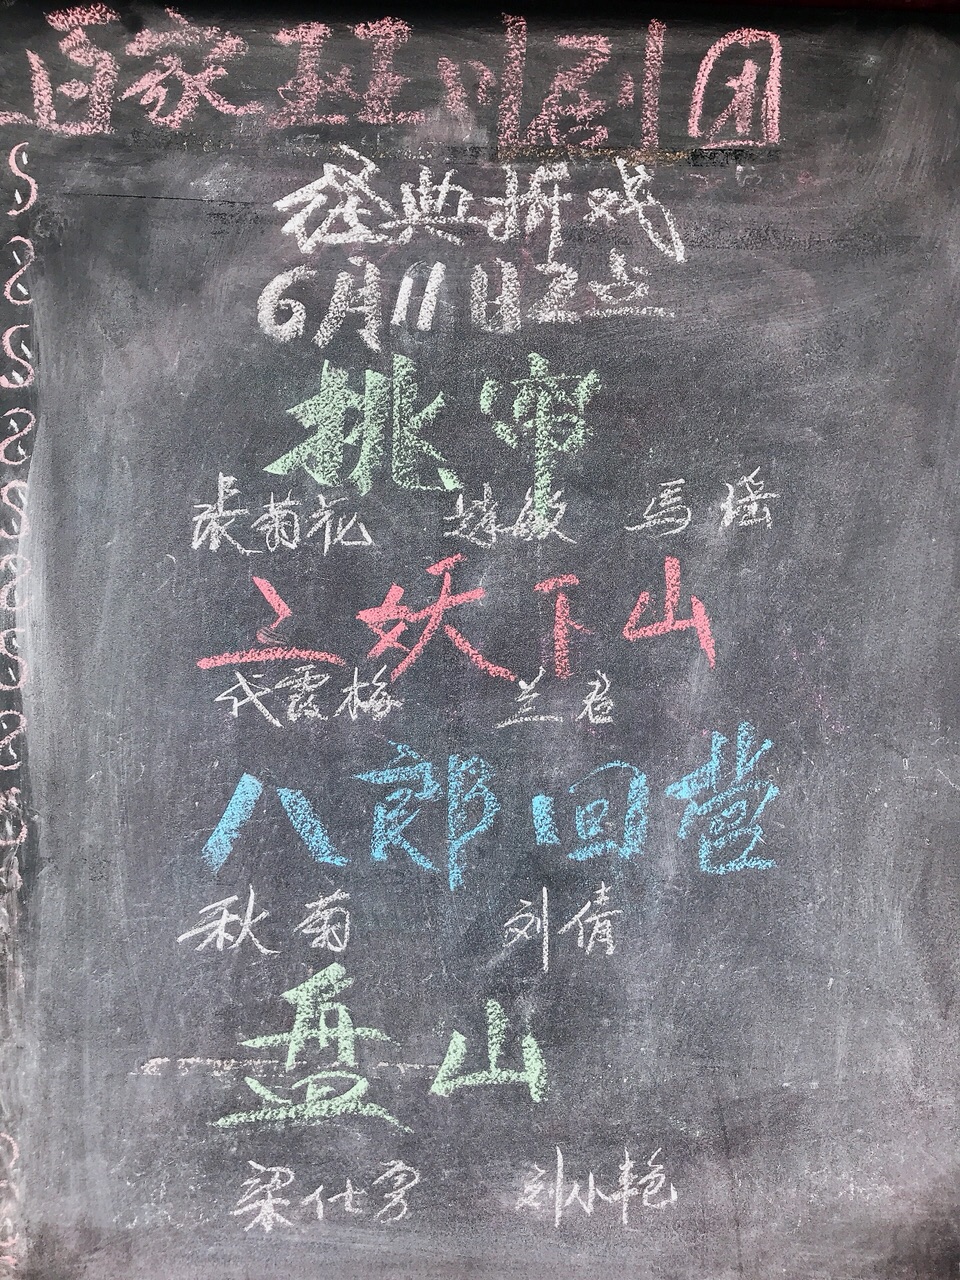 百家班川剧团
经典折戏
6月11日2点
挑帘
张菊花 赵敏 马瑶
妖下山
代霞梅 兰君
八郎回营
秋菊 刘倩
盘山
梁仕勇 刘小艳